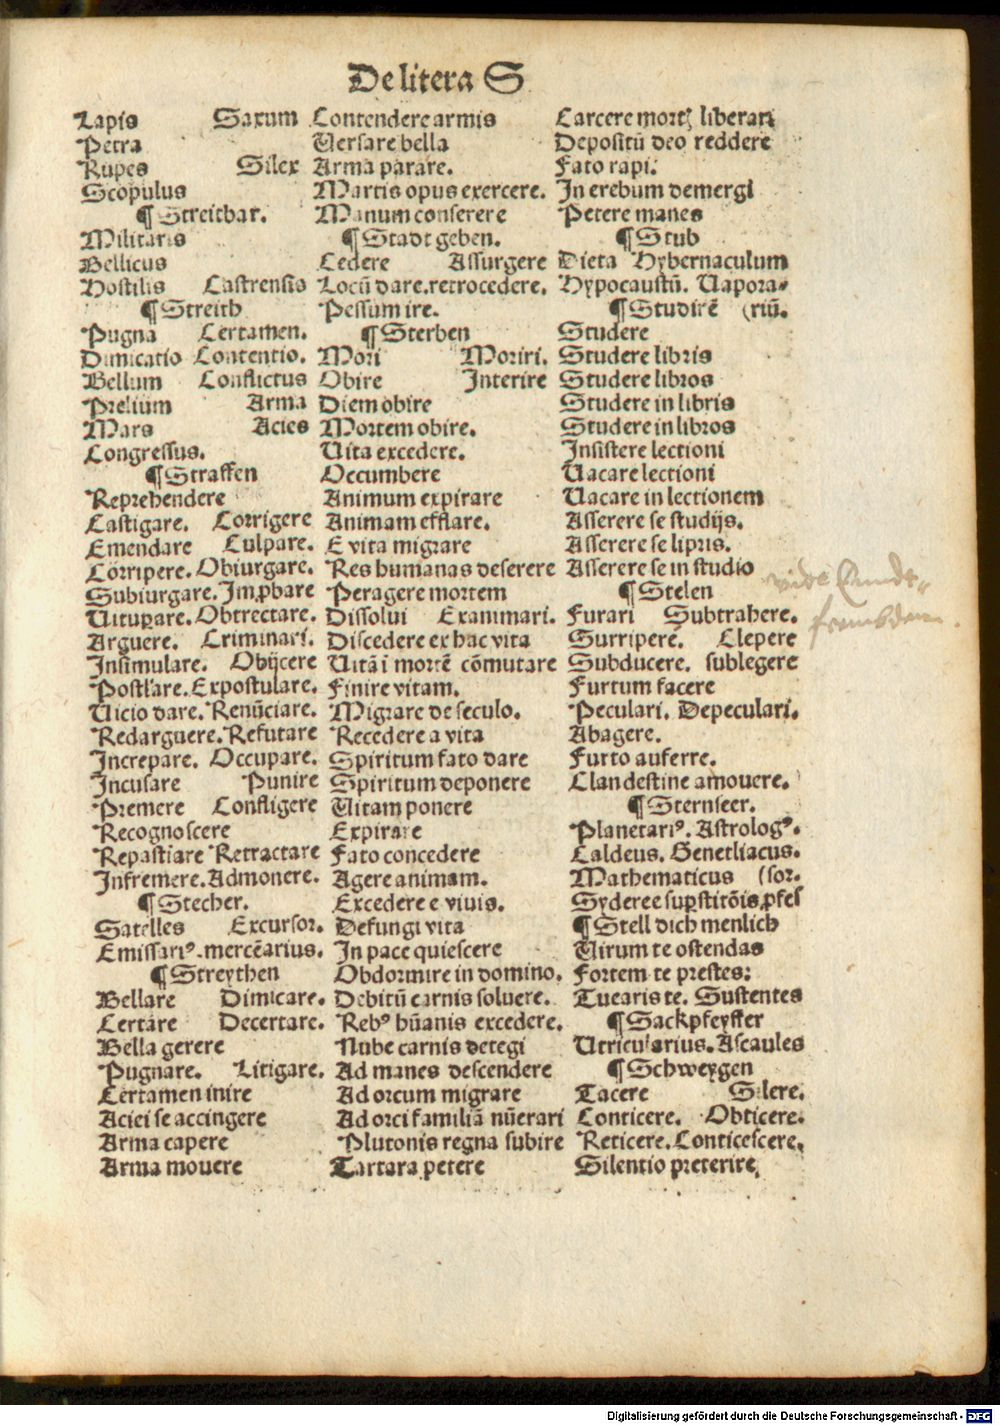 De litera S
Lapis Saxum
Petra
Rupes Silex
Scopulus
¶ Streitbar.
Militaris
Bellicus
Hostilis Castrensis
¶ Streith
Pugna Certamen.
Dimicatio Contentio.
Bellum Conflictus
Prelium Arma
Mars Acies
Congressus.
¶ Straffen
Reprehendere
Castigare. Corrigere
Emendare Culpare.
Corripere. Obiurgare.
Subiurgare. Imꝓbare
Uituꝑare. Obtrectare.
Arguere. Criminari.
Insimulare. Obijcere
Postl'are. Expostulare.
Uicio dare. Renũciare.
Redarguere. Refutare
Increpare. Occupare.
Incusare Punire
Premere Confligere
Recognoscere
Repastiare Retractare
Infremere. Admonere.
¶ Stecher.
Satelles Excursor.
Emissariꝰ. mercẽarius.
¶ Streythen
Bellare Dimicare.
Certare Decertare.
Bella gerere
Pugnare. Litigare.
Certamen inire
Aciei se accingere
Arma capere
Arma mouere
Contendere armis
Uersare bella
Arma parare.
Martis opus exercere.
Manum conserere
¶ Stadt geben.
Cedere Assurgere
Locũ dare. retrocedere.
Pessum ire.
¶ Sterben
Mori Moriri.
Obire Interire
Diem obire
Mortem obire.
Uita excedere.
Occumbere
Animum expirare
Animam efflare.
E vita migrare
Res humanas deserere
Peragere mortem
Dissolui Exanimari.
Discedere ex hac vita
Uitã i mortẽ cõmutare
Finire vitam.
Migrare de seculo.
Recedere a vita
Spiritum fato dare
Spiritum deponere
Uitam ponere
Expirare
Fato concedere
Agere animam.
Excedere e viuis.
Defungi vita
In pace quiescere
Obdormire in domino.
Debitũ carnis soluere.
Rebꝰ hũanis excedere.
Nube carnis detegi
Ad manes descendere
Ad orcum migrare
Ad orci familiã nũerari
Plutonis regna subire
Tartara petere
Carcere mortꝭ liberari
Depositũ deo reddere
Fato rapi.
In erebum demergi
Petere manes
¶ Stub
Dieta Hybernaculum
Hypocaustũ. Uapora-
¶ Studirẽ (riũ.
Studere
Studere libris
Studere libros
Studere in libris
Studere in libros
Insistere lectioni
Uacare lectioni
Uacare in lectionem
Asserere se studijs.
Asserere se lipris.
Asserere se in studio
¶ Stelen
Furari Subtrahere.
Surripere. Clepere
Subducere. sublegere
Furtum facere
Peculari. Depeculari.
Abagere.
Furto auferre.
Clandestine amouere.
¶ Sternseer.
Planetariꝰ. Astrologꝰ.
Caldeus. Genetliacus.
Mathematicus (sor.
Syderee suꝑstitõis ꝓfes
¶ Stell dich menlich
Uirum te ostendas
Fortem te prestes:
Tuearis te. Sustentes
¶ Sackpfeyffer
Utricularius. Ascaules
¶ Schweygen
Tacere Silere.
Conticere. Obticere.
Reticere. Conticescere.
Silentio preterire.
vide
Digitalisierung gefördert durch die Deutsche Forschungsgemeinschaft - DFG